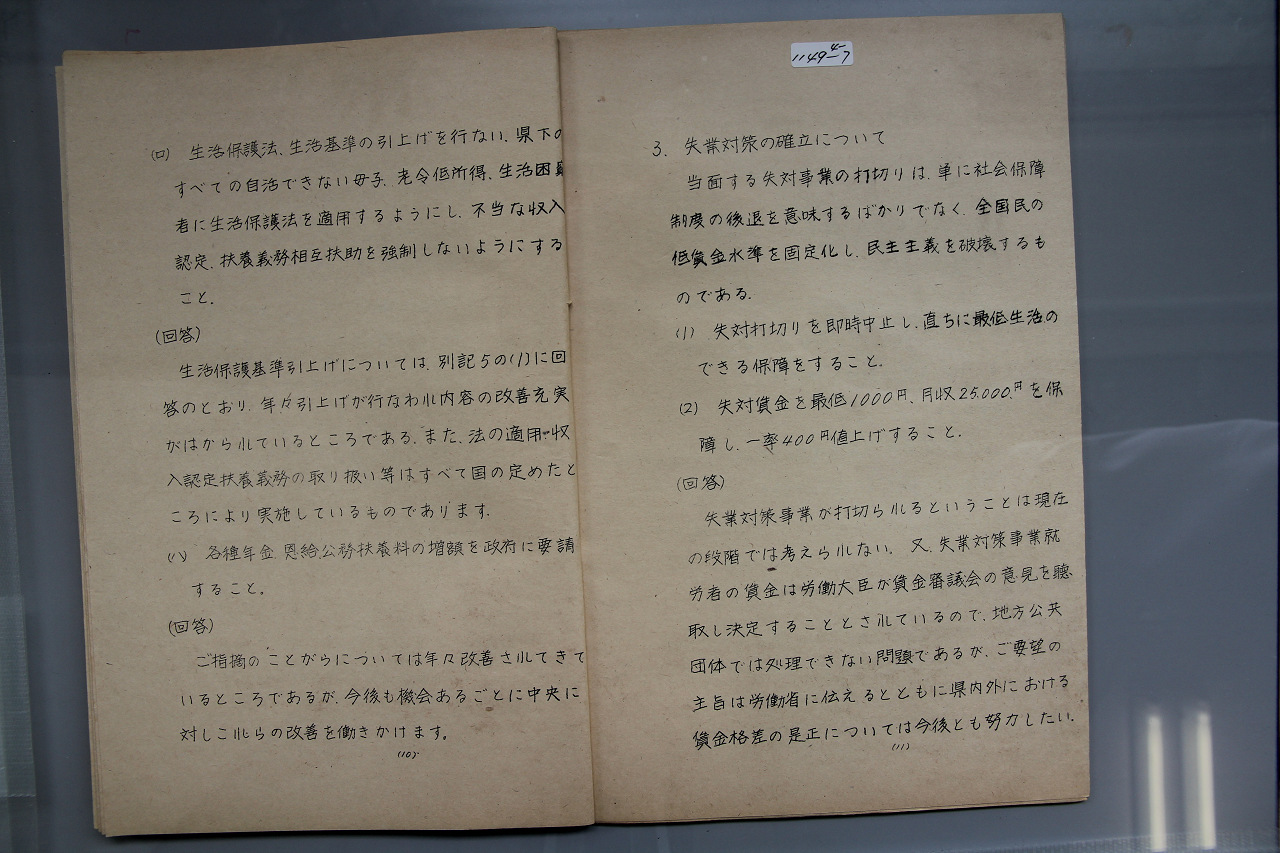 (ロ) 生活保護法、生活基準の引上げを行ない、県下の
すべての自活できない母子、老令低所得、生活困窮
者に生活保護法を適用するようにし、不当な収入
認定、扶養義務相互扶助を強制しないようにする
こと。
(回答)
生活保護基準引上げについては、別記5の(1)に回
答のとおり、年々引上げが行なわれ内容の改善充実
がはかられているところである。また、法の適用や収
入認定扶養義務の取り扱い等はすべて国の定めたと
ころにより実施しているものであります。
(ハ) 各種年金、恩給公務扶養料の増額を政府に要請
すること。
(回答)
ご指摘のことがらについては年々改善されてきて
いるところであるが、今後も機会あるごとに中央に
対しこれらの改善を働きかけます。
(10)
1149 4-7
3. 失業対策の確立について
当面する失対事業の打切りは、単に社会保障
制度の後退を意味するばかりでなく、全国民の
低賃金水準を固定化し、民主主義を破壊するも
のである。
(1) 失対打切りを即時中止し、直ちに最低生活の
できる保障をすること。
(2) 失対賃金を最低1000円、月収25.000.円を保
障し、一率400円値上げすること。
(回答)
失業対策事業が打切られるということは現在
の段階では考えられない。又、失業対策事業就
労者の賃金は労働大臣が賃金審議会の意見を聴
取し決定することとされているので、地方公共
団体では処理できない問題であるが、ご要望の
主旨は労働省に伝えるとともに県内外における
賃金格差の是正については今後とも努力したい。
(11)